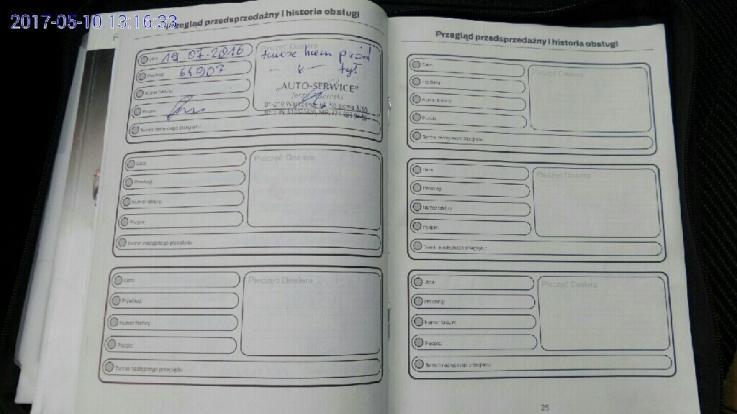 2017-05-10 13:16:33
Przegląd przedsprzedażny i historia obsługi
Data 19.07.2016
Przebieg 64907
Numer faktury
Podpis
Termin następnego przeglądu
Pieczęć Dealera
przód
tył
„AUTO-SERWICE"
Data
Przebieg
Numer faktury
Podpis
Termin następnego przeglądu
Pieczęć Dealera
Data
Przebieg
Numer faktury
Podpis
Termin następnego przeglądu
Pieczęć Dealera
Przegląd przedsprzedażny i historia obsługi
Data
Przebieg
Numer faktury
Podpis
Termin następnego przeglądu
Pieczęć Dealera
Data
Przebieg
Numer faktury
Podpis
Termin następnego przeglądu
Pieczęć Dealera
Data
Przebieg
Numer faktury
Podpis
Termin następnego przeglądu
Pieczęć Dealera
25